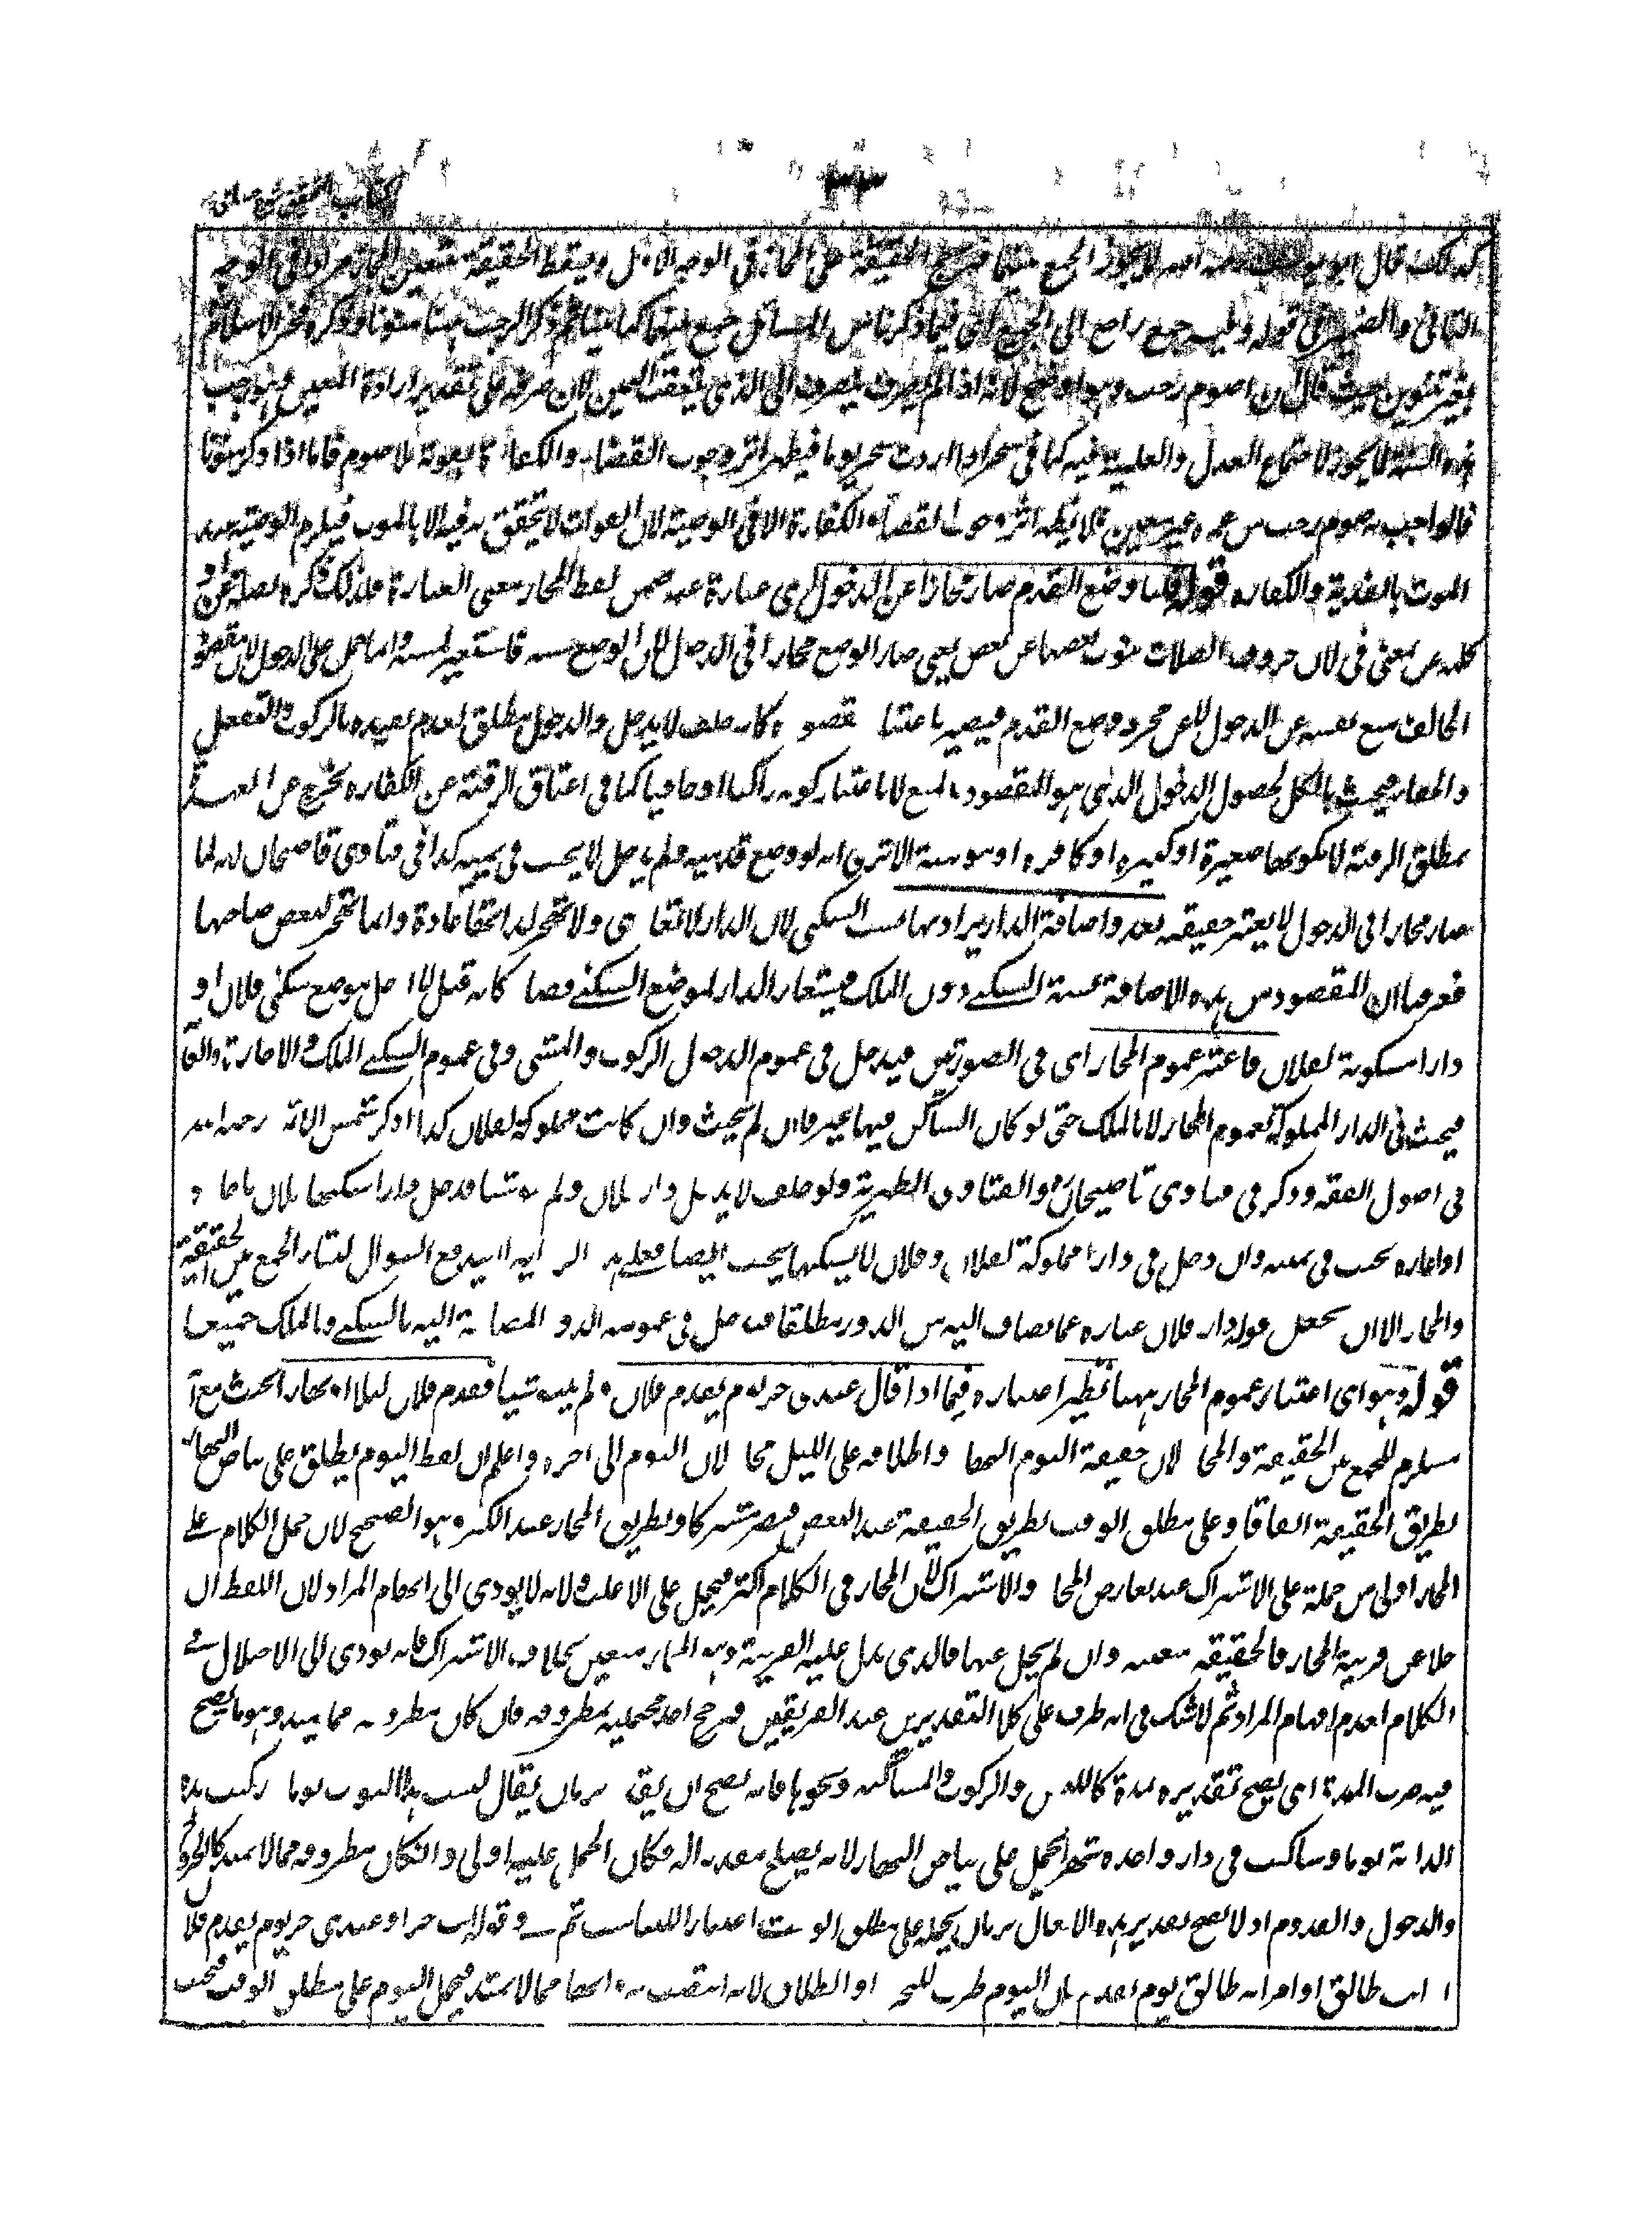 كذلك قال ابو يوسف رحمه الله لا يجوز الجمع بينهما فترجح الحقيقة على المجاز فى الوجه الاول ويسقط الحقيقة بتعين المجاز مرادا فى الوجه
الثانى والضمير فى قوله وليس جمع راجع الى الجميع اى فيما ذكرنا من المسائل جمع بينهما كما بينا ثم ذكر رجب هنا منونا وذكره فخر الاسلام
بغير تنوين حيث قال ان اصوم رجب وهو اوضح لانه اذا لم ينصرف ينصرف الى الذى يتعقب اليمين لان صرفه على تقدير ارادة المعين
هذه السنة لا يجوز لاجتماع العدل والعلمية فيه كما فى سحر اذا اردت سحر يومك فيظهر اثر وجوب القضاء والكفارة بفوته بلا صوم فاما اذا ذكر منونا
فالواجب صوم رجب من عمره غير معين فلا يظهر اثر وجوب القضاء والكفارة الا فى الوصية لان الفوات لا يتحقق فيه الا بالموت فيلزم الوصية عند
الموت بالفدية والكفارة قوله قلنا وضع القدم صار مجازا عن الدخول اى عبارة عنه ضمن لفظ المجاز معنى العبارة فلذلك ذكره بصلة عن او
كلمة عن بمعنى فى لان حروف الصلات ينوب بعضها عن بعض يعنى صار الوضع مجازا فى الدخول لان الوضع سببه فاستعير لمسببه وانما حمل على الدخول لان مقصود
الحالف منع نفسه عن الدخول لا عن مجرد وضع القدم فيصير باعتبار مقصوده كانه حلف لا يدخل والدخول مطلق لعدم تقييده بالركوب والتنعل
والحفاء فيحنث بالكل لحصول الدخول الذى هو المقصود بالمنع لا باعتبار كونه راكبا او حافيا كما فى اعتاق الرقبة عن الكفارة يخرج عن العهدة
بمطلق الرقبة لا بكونها صغيرة او كبيرة او كافرة او مومنة الا ترى انه لو وضع قدميه ولم يدخل لا يحنث فى يمينه كذا فى فتاوى قاضيخان لانه لما
صار مجازا فى الدخول لا يعتبر حقيقته بعد واضافة الدار يراد بها نسبة السكنى لان الدار لا تعادى ولا تهجر لذاتها عادة وانما تهجر لبغض صاحبها
فعرفنا ان المقصود من هذه الاضافة نسبة السكنى دون الملك فيستعار الدار لموضع السكنى فصار كانه قيل لا ادخل موضع سكنى فلان او
دارا مسكونة لفلان فاعتبر عموم المجاز اى فى الصورتين فيدخل فى عموم الدخول الركوب والمشى وفى عموم السكنى الملك والاجارة والعا
فيحنث فى الدار المملوكة لعموم المجاز لا بالملك حتى لو كان الساكن فيها غير فلان لم يحنث وان كانت مملوكة لفلان كذا ذكر شمس الائمة رحمه الله
فى اصول الفقه وذكر فى فتاوى قاضيخان والفتاوى الظهيرية ولو حلف لا يدخل دار فلان ولم ينو شيئا فدخل دارا سكنها فلان باجارة
او اعارة يحنث فى يمينه وان دخل فى دار مملوكة لفلان وفلان لا يسكنها يحنث ايضا فعلى هذه الرواية لا يندفع السوال لبقاء الجمع بين الحقيقة
والمجاز الا ان يجعل قوله دار فلان عبارة عما يضاف اليه من الدور مطلقا فيدخل فى عمومه الدور المضافة اليه بالسكنى والملك جميعا
قوله وهو اى اعتبار عموم المجاز ههنا نظير اعتباره فيما اذا قال عبدى حر يوم يقدم فلان ولم ينو شيئا فقدم فلان ليلا او نهارا يحنث مع انه
مستلزم للجمع بين الحقيقة والمجاز لان حقيقة اليوم النهار واطلاقه على الليل مجاز لان اليوم الى اخره واعلم ان لفظ اليوم يطلق على بياض النهار
بطريق الحقيقة اتفاقا وعلى مطلق الوقت بطريق الحقيقة عند البعض فيصير مشتركا وبطريق المجاز عند الاكثر وهو الصحيح لان حمل الكلام على
المجاز اولى من حمله على الاشتراك عند تعارض المجاز والاشتراك لان المجاز فى الكلام اكثر فيحمل على الاغلب ولانه لا يودى الى ابهام المراد لان اللفظ ان
خلا عن قرينة المجاز فالحقيقة متعينة وان لم يخل عنها فالذى يدل عليه القرينة وهو المجاز متعين بخلاف الاشتراك فانه يودى الى الاخلال فى
الكلام لعدم افهام المراد ثم لا شك فى انه ظرف على كلا التقديرين عند الفريقين فيرجح احد محتمليه بمظروفه فان كان مظروفه مما يمتد وهو ما يصح
فيه ضرب المدة اى يصح تقديره بمدة كاللبس والركوب والمساكنة ونحوها فانه يصح ان يقدر بزمان يقال لبست هذا الثوب يوما وركبت هذه
الدابة يوما وساكنت فى دار واحدة شهرا يحمل على بياض النهار لانه يصلح مقدرا له فكان الحمل عليه اولى وان كان مظروفه مما لا يمتد كالخروج
والدخول والقدوم اذ لا يصح تقدير هذه الافعال بزمان يحمل على مطلق الوقت اعتبارا للتناسب ثم فى قوله انت حر او عبدى حر يوم يقدم فلان
او انت طالق او امراته طالق يوم يقدم فلان اليوم ظرف للتحرير او الطلاق لانه انتصب به وانهما مما لا يمتد فيحمل اليوم على مطلق الوقت فيحنث